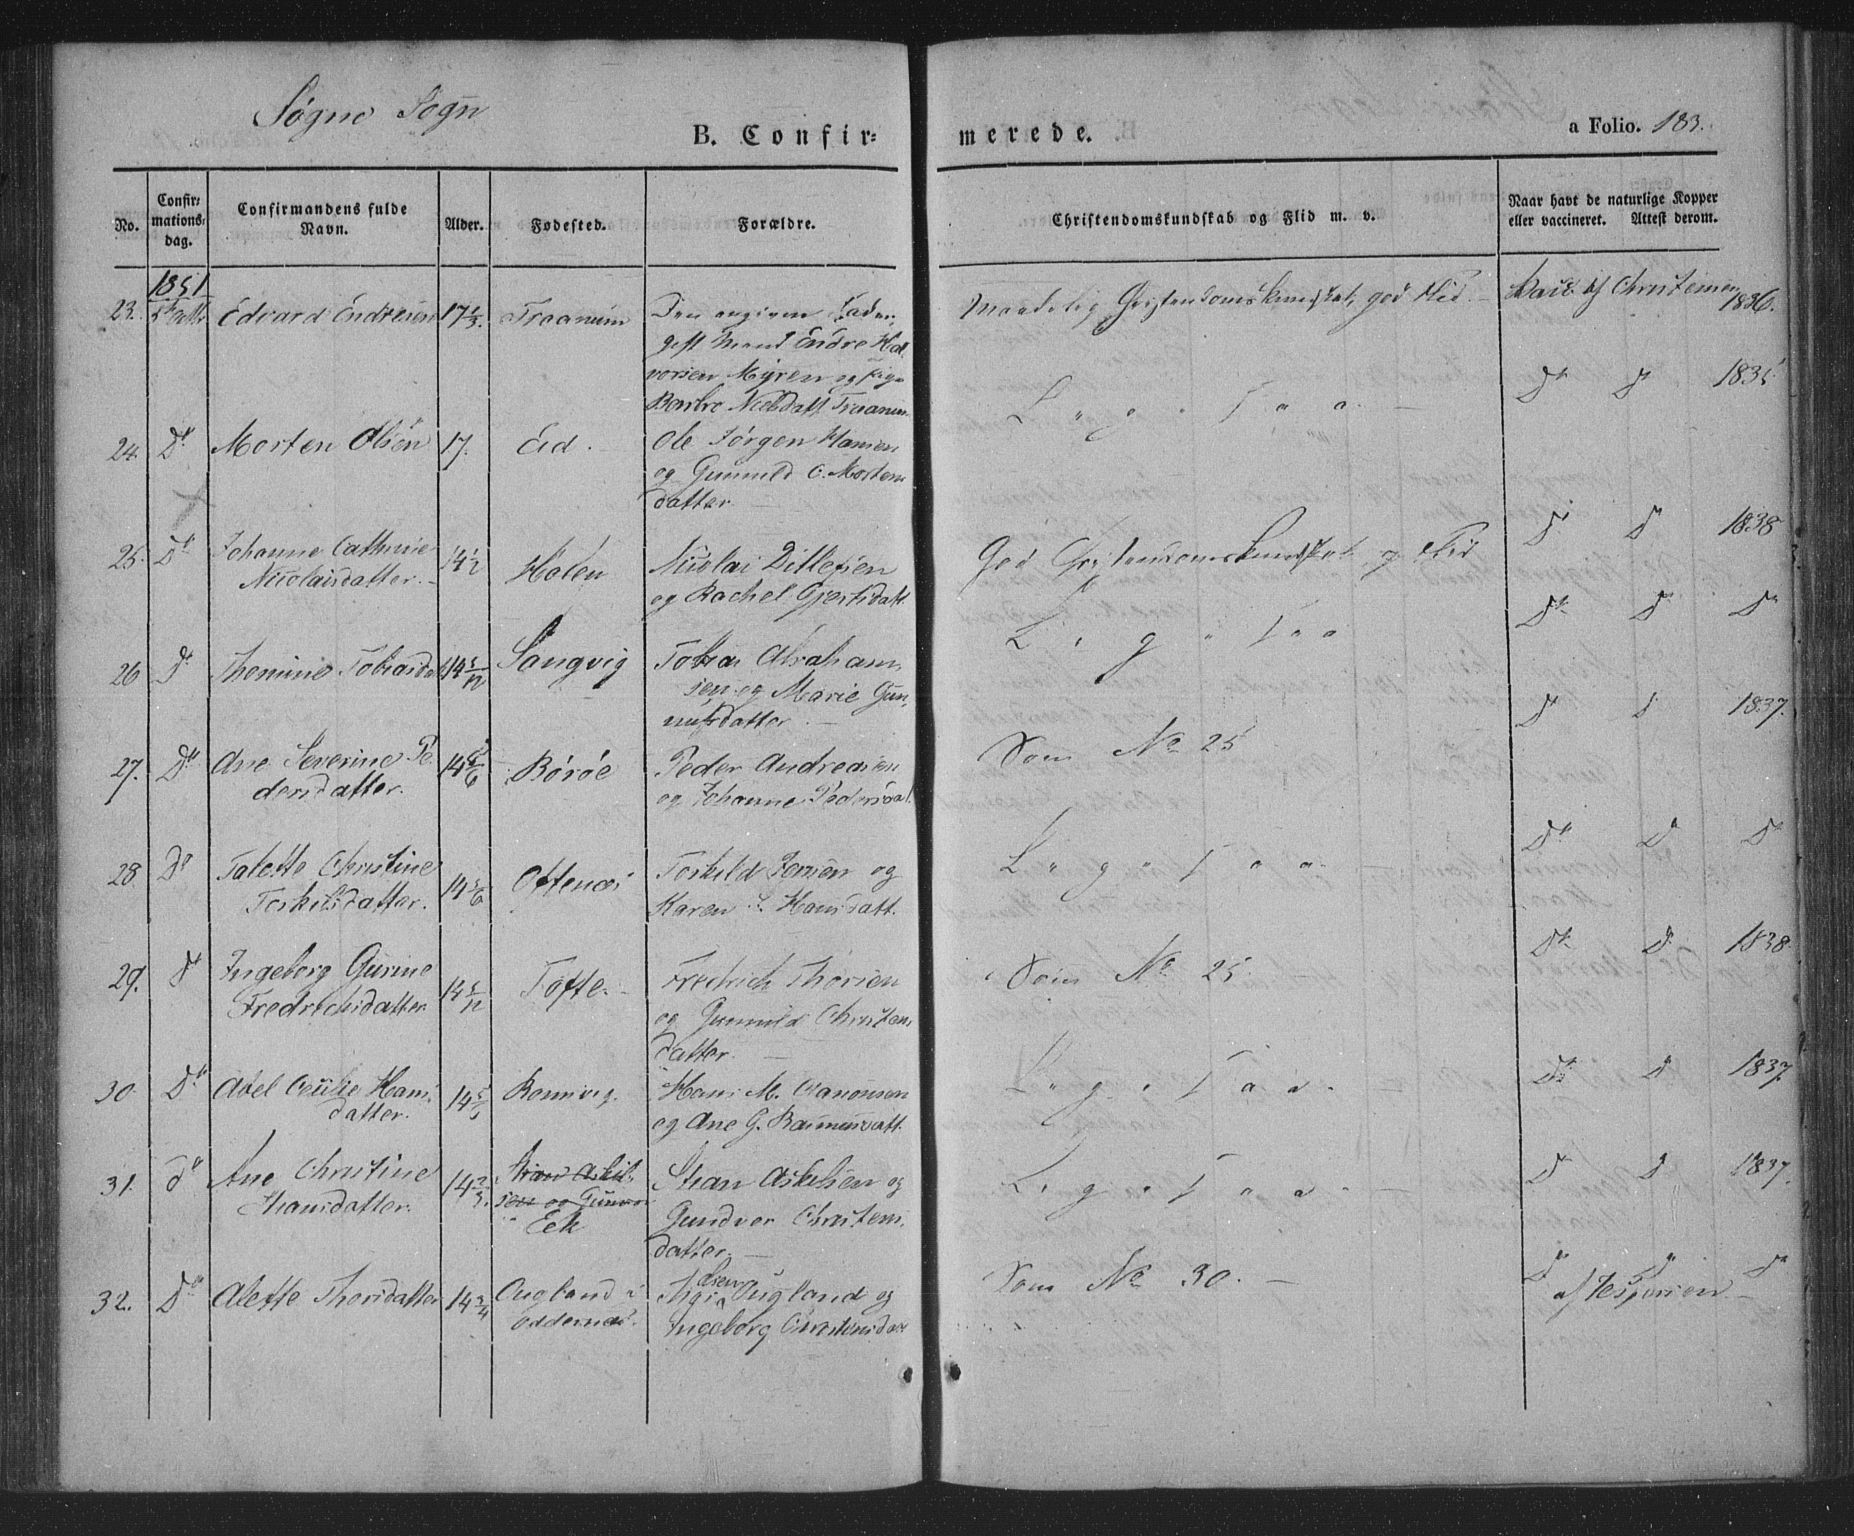 Søgne Sogn
B. Confir=
merede.
a Folio. 183.
No.
Confir=
mations=
dag.
Confirmandens fulde
Navn.
Alder.
Fødested.
Forældre.
Christendomskundskab og Flid m. v.
Naar havt de naturlige Kopper
eller vaccineret. Attest derom.
1851
23. Edvard Endresen 17 Traanum Den angivne Fader
gift Mand Endre Hal
vorsen Myren og Pige
Barbro Nielsdatt. Traanum
Maadelig Christendomskundskab, god Flid. Vacc. af Christensen
1836.
24. Do Morten Olsen 17. Eid. Ole Jørgen Hansen
og Gunnild C. Mortens
datter
Ligesaa
Do Do 1835
25. Do Johanne Cathrine
Nicolaisdatter. 14½ Holen Nicolai Ditlefsen
og Rachel Gjertsdatt.
God Christendomskundskab og Flid
Do Do 1838
26 Do Thomine Tobiasda 14 5/12 Langvig Tobias Abraham
sen og Marie Gun
nufsdatter
Ligesaa
Do Do Do
27. Do Ane Severine Pe
dersdatter. 14 5/6 Borøe Peder Andreasen
og Johanne Pedersdat.
Som No 25
Do Do 1837.
28 Do Talette Christine
Torkilsdatter. 14 5/6 Ottenes Torkild Jensen og
Karen Hansdatt.
Ligesaa
Do Do Do
29. Do Ingeborg Gurine
Fredrichsdatter 14 5/12 Tofte. Fredrich Thorsen
og Gunnild Christens
datter.
Som No 25.
Do Do 1838.
30. Do Abel Cecilie Hans
datter. 14 Ronnvig. Hans M. Aanonsen
og Ane G. Rasmusdatt.
Ligesaa
Do Do 1837
31. Do Ane Christine
Hansdatter. 14 Stian Askil
sen og Gunvor
Eek
Stian Askelsen og
Gundvor Christens
datter.
Ligesaa
Do Do 1837.
32. Do Alette Thorsdatter 14¾ Augland i
Oddernes. Augland og
Ingeborg Christensdatt
Som No 30.
Do Do Do
af Jespersen